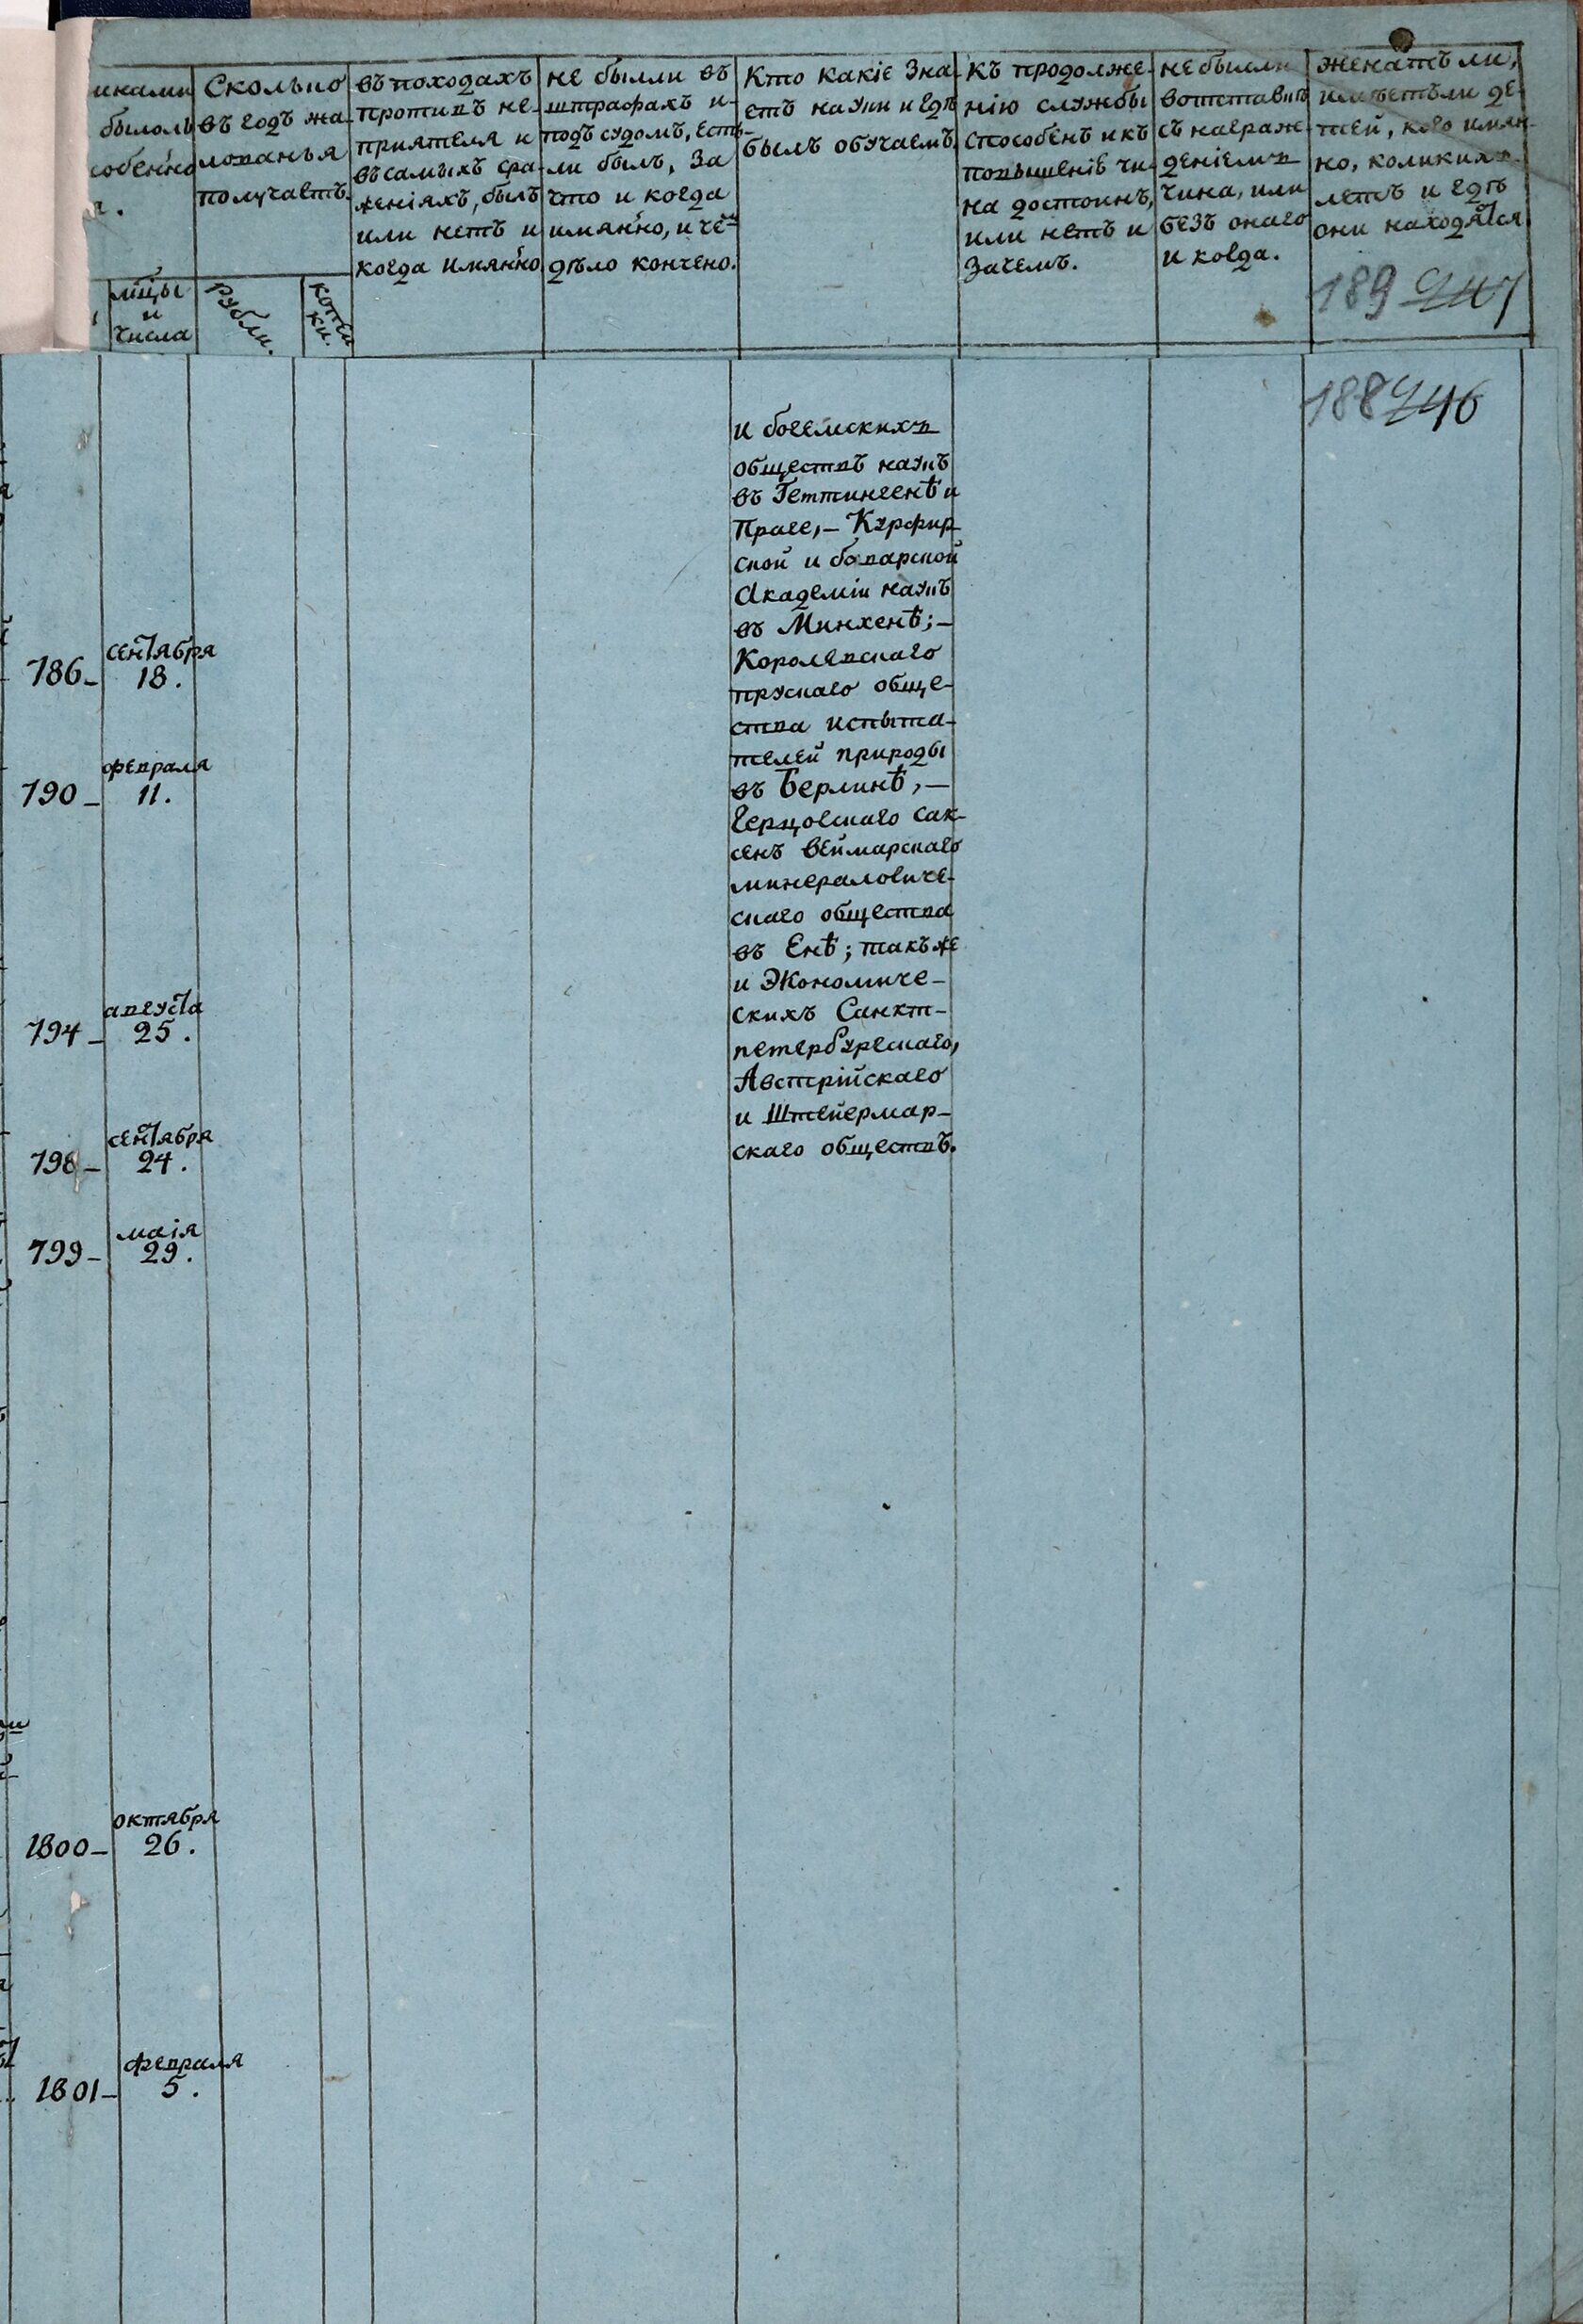 Сколько
въ годъ жа-
лованья
получаетъ.
рубли.
копей
ки.
мцы
и
числа
въ походахъ
противъ не-
приятеля и
въ самыхъ сра-
женіяхъ, былъ
или нетъ и
когда имянно
не былли въ
штрафахъ и
подъ судомъ, есть-
ли былъ, за
что и когда
имянно, и чемъ
дѣло кончено.
Кто какіе зна-
етъ науки и гдѣ
былъ обучаемъ.
Къ продолже-
нію службы
способенъ и къ
повышеніе чи-
на достоинъ,
или нетъ и
зачемъ.
не былли
вотставкѣ
съ награж-
деніемъ
чина, или
безъ онаго
и когда.
женатъ ли,
имѣетъ ли де-
тей, кого имян-
но, коликихъ
летъ и гдѣ
они находятся
189 247
188 246
и богемскихъ
обществъ наукъ
въ Геттингенѣ и
Праге,- Курфир-
ской и баварской
Академіи наукъ
въ Минхенѣ;-
Королевскаго
прускаго обще-
ства испыта-
телей природы
въ Берлинѣ,-
Герцогскаго Сак-
сенъ Веймарскаго
минералогиче-
скаго общества
въ Енѣ; такъ же
и Экономиче-
скихъ Санкт-
петербургскаго,
Австрійскаго
и Штейермар-
скаго обществъ.
786- сентября
18.
790- февраля
11.
794- августа
25.
798- сентября
24.
799- маія
29.
1800- октября
26.
1801- февраля
5.